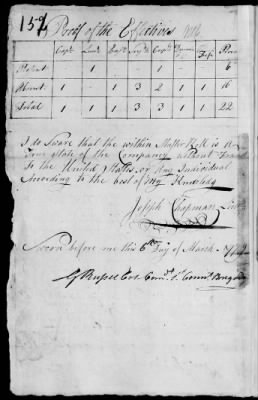 157
Proof of the Effectives
Capt Lieu Ens Serj Corp Drum Fif Priv
Present 1 1 1 6
Absent 1 1 3 2 1 16
Total 1 1 1 3 3 1 1 22
I do Sware that the within Muster Roll is a
True State of the Company without Fraud
To the United States or any Individual
According to the best of my Knowledg
Joseph Chapman Lieut
Sworn before me this 6th Day of March
G Russel